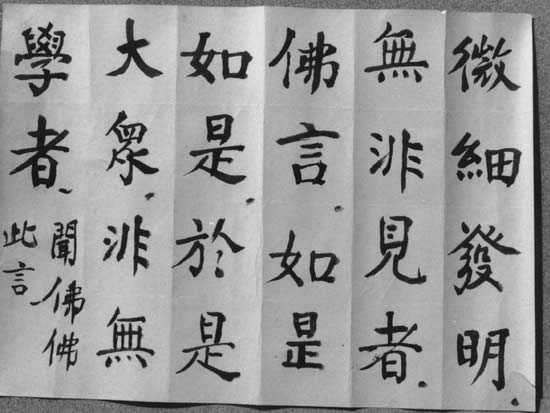 微細發明.
無非見者.
佛言.如是
如是.於是
大眾.非無
學者.
聞佛佛
此言